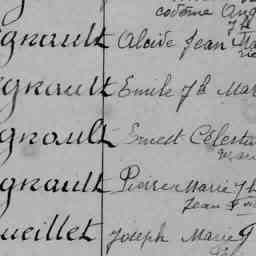 codême Aug
gnault Alcide Jean Ma
gnault Emile Jh Mar
gnault Ernest Célesti
gnault Pierre Marie Jh
Jean
ueillet Joseph Marie